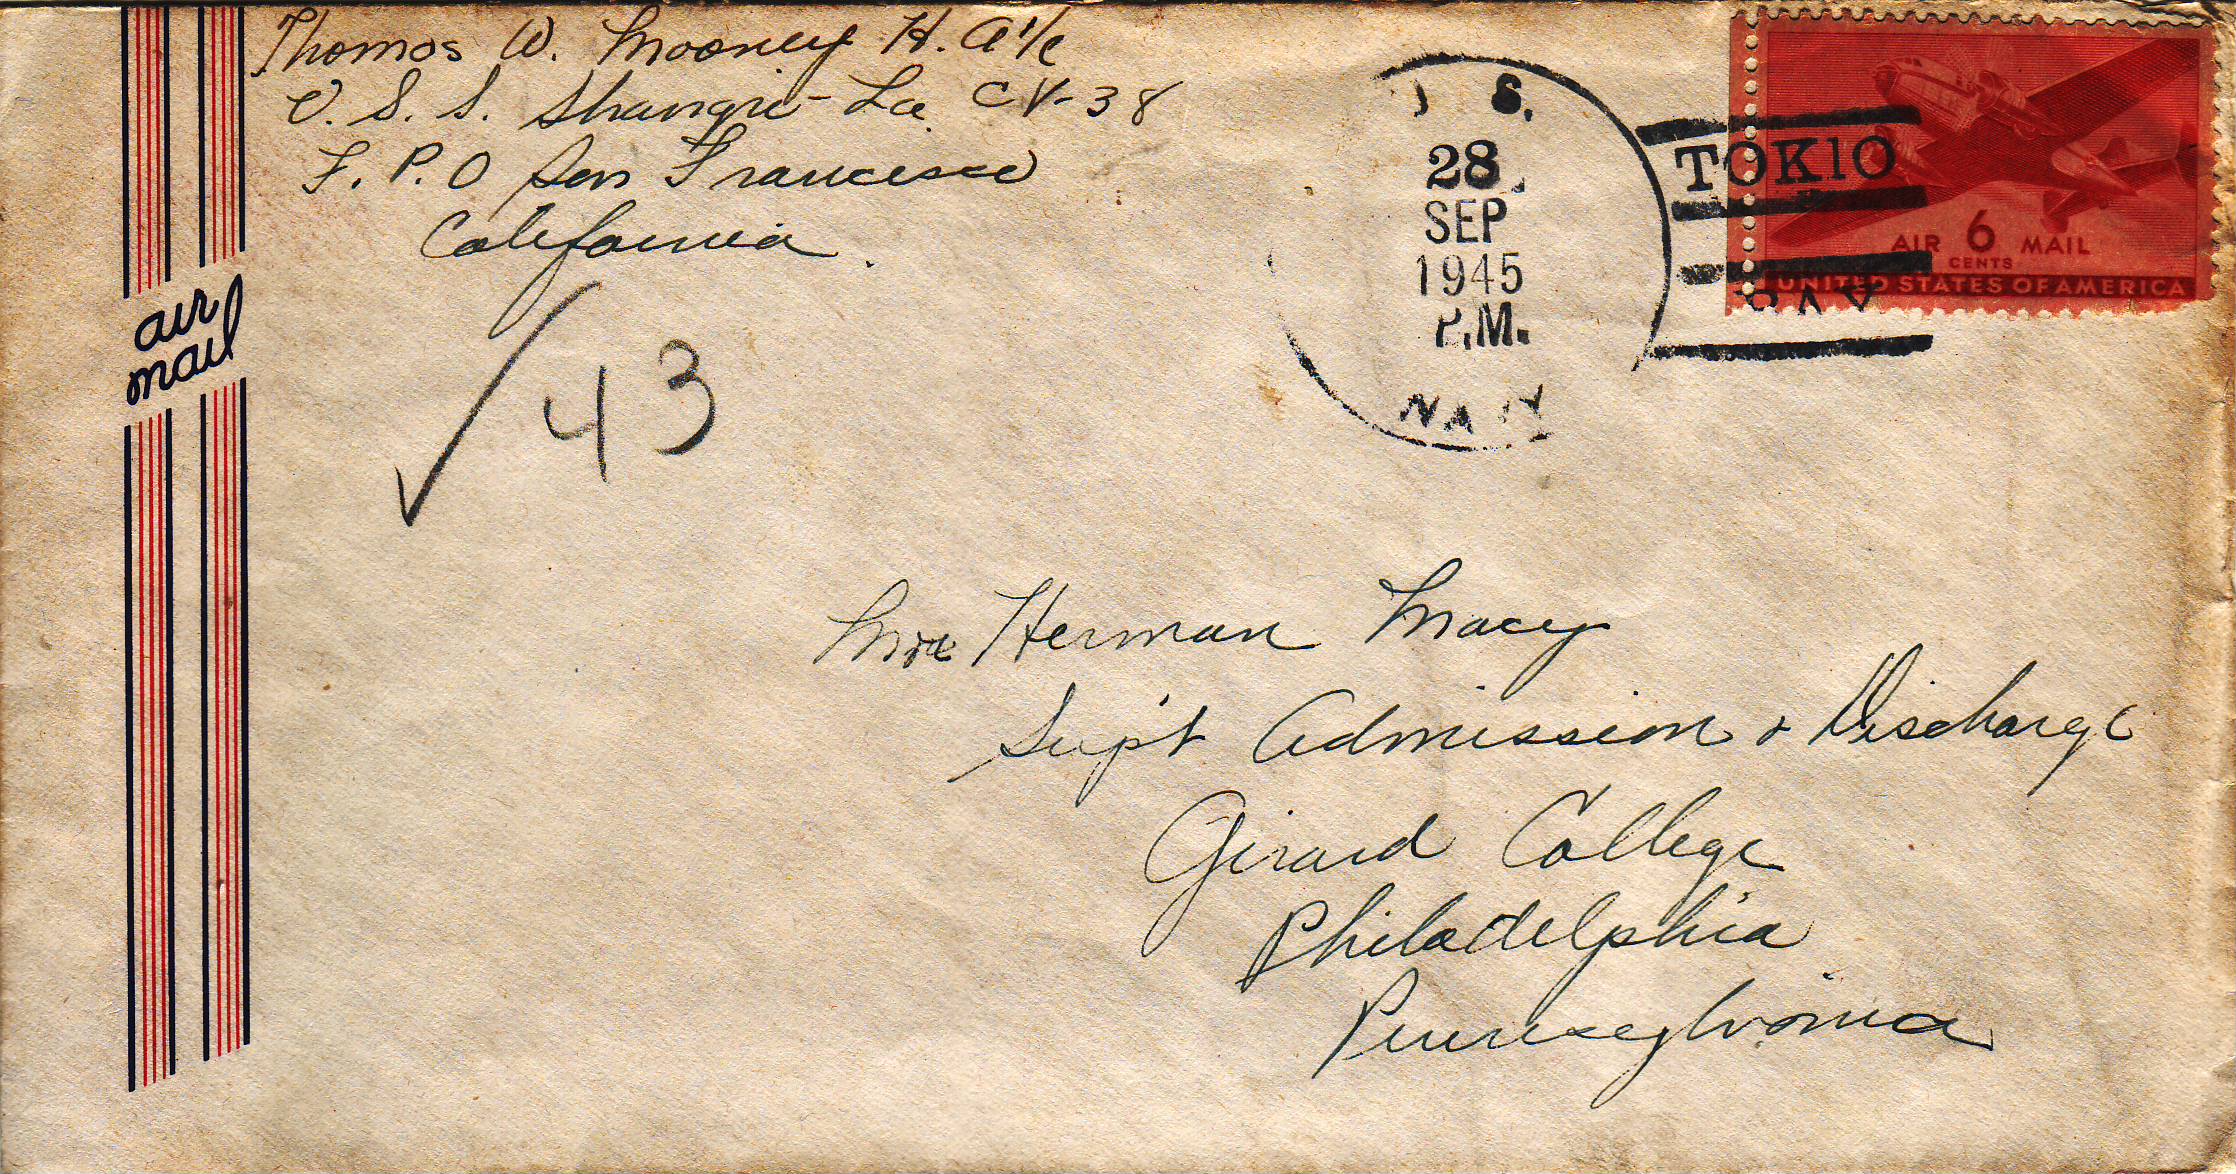 Thomas W. Mooney H. A 1/c
U. S. S. Shangri-La CV-38
F. P. O San Francisco
California.
air
mail
43
U. S.
28
SEP
1945
P.M.
NAVY
TOKIO
BAY
AIR 6 MAIL
CENTS
UNITED STATES OF AMERICA
Herman Macy
Sup't Admission & Discharge
Girard College
Philadelphia
Pennsylvania